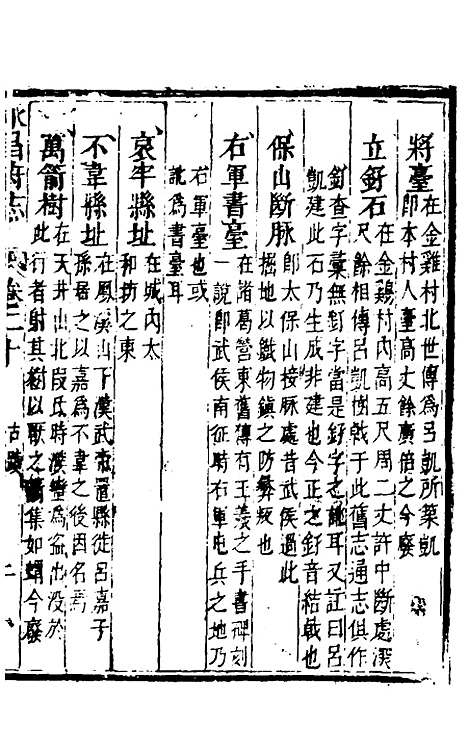 將臺在金雞村北世傳爲呂凱所築凱
即本村人臺高丈餘廣倍之今廢
立釨石在金鷄村內高五尺周二丈許中斷處深
尺餘相傳呂凱樹戟于此舊志通志俱作
釪查字彙無釪字當是釨字之訛耳又註曰呂
凱建此石乃生成非建也今正之釨音結戟也
保山斷脉即太保山接脉處昔武侯過此
掘地以鐵物鎮之防夷叛也
右軍書臺在諸葛營東舊傳有王羲之手書碑刻
一說即武侯南征時右軍屯兵之地乃
右軍臺也或
訛爲書臺耳
哀牢縣址在城內太
和坊之東
不韋縣址在鳳溪山下漢武帝置縣徙呂嘉子
孫居之以嘉爲不韋之後因名焉
萬箭樹在天井山北段氏時濮蠻爲盜出没於
此行者射其樹以厭之箭集如蝟今廢
永昌府志 卷二十 古蹟 二